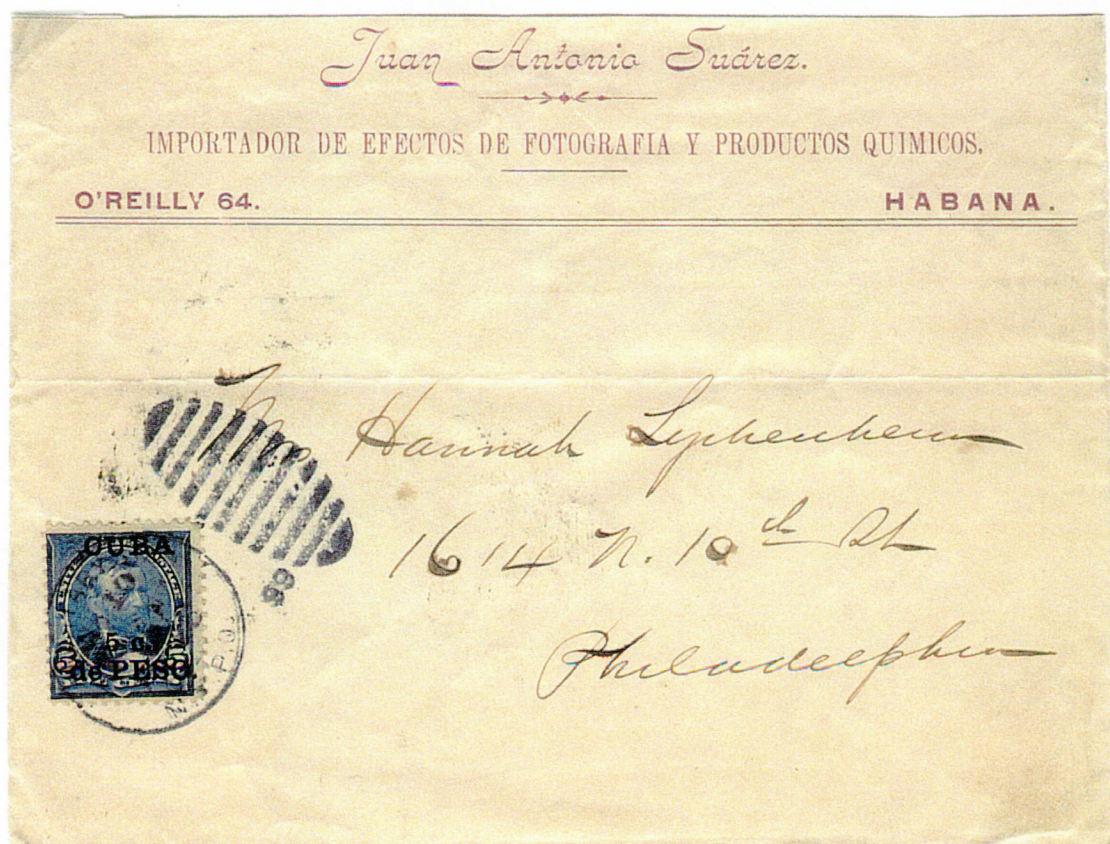 Juan Antonio Suárez.
IMPORTADOR DE EFECTOS DE FOTOGRAFIA Y PRODUCTOS QUIMICOS.
O'REILLY 64. HABANA.
Hannah
1614 N. 10th St
Philadelphia
99
CUBA
5 c.
de PESO
5 5
P.O.